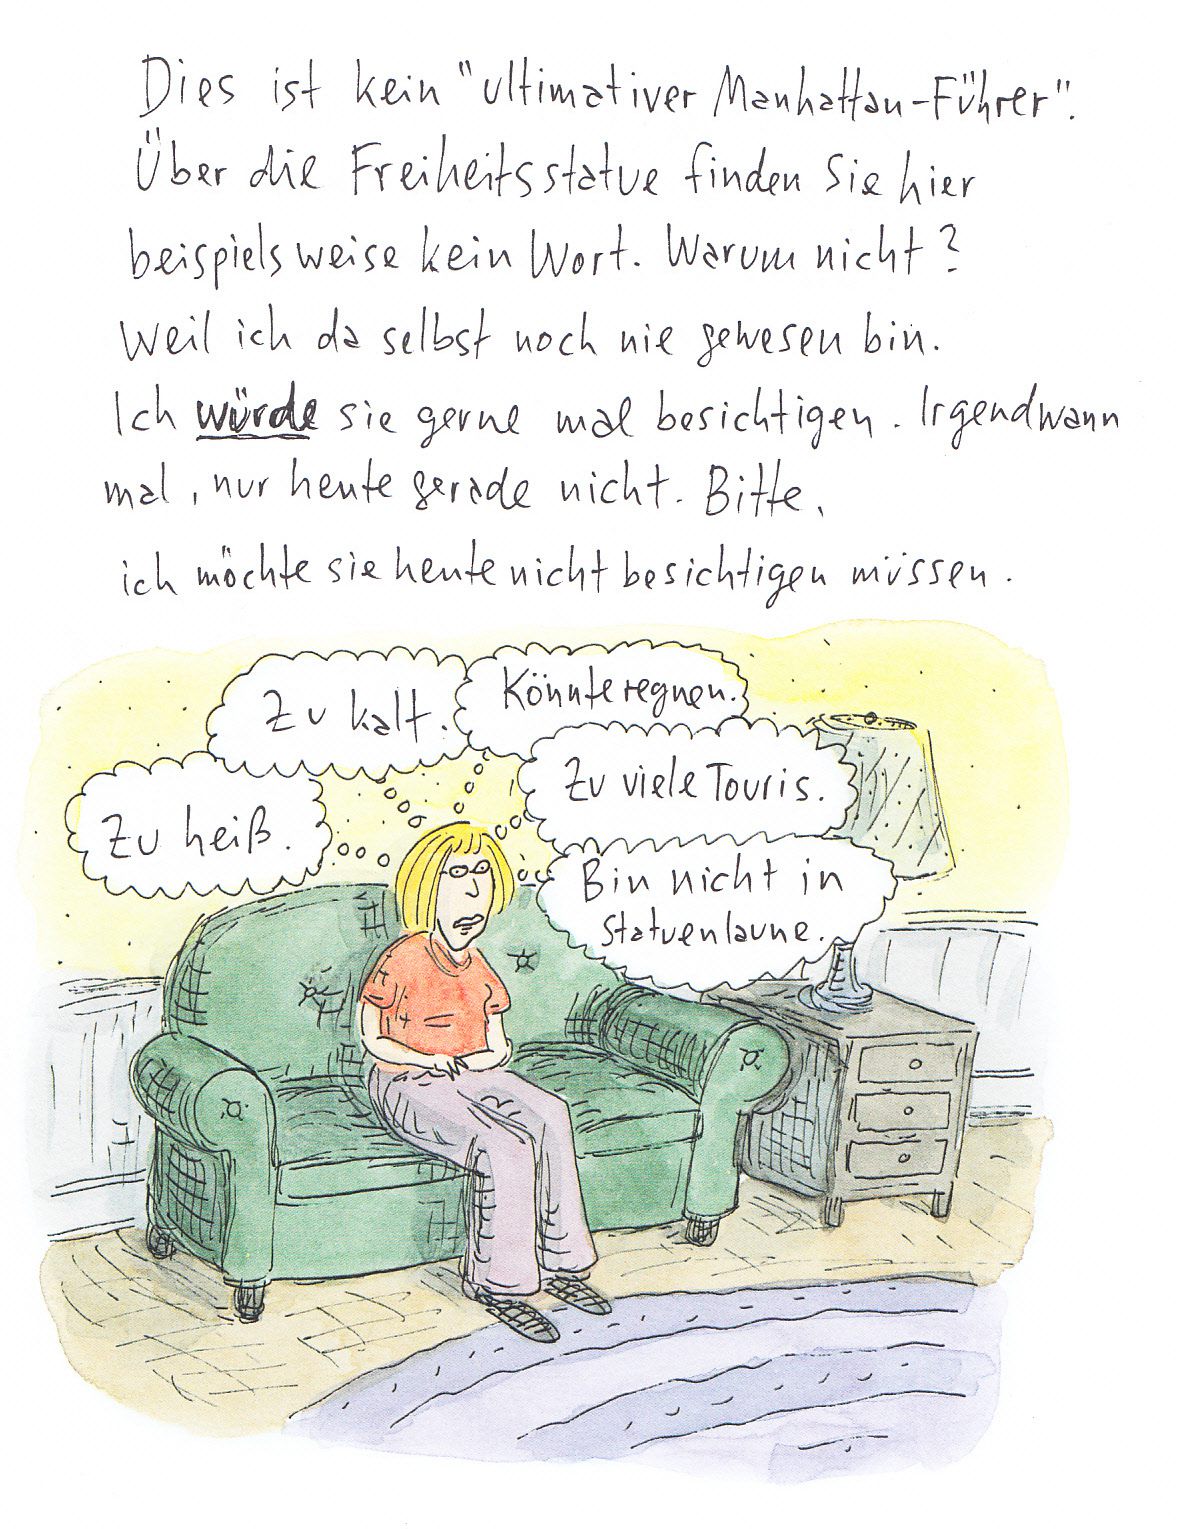 Dies ist kein "ultimativer Manhattan-Führer".
Über die Freiheitsstatue finden Sie hier
beispielsweise kein Wort. Warum nicht?
Weil ich da selbst noch nie gewesen bin.
Ich würde sie gerne mal besichtigen. Irgendwann
mal, nur heute gerade nicht. Bitte,
ich möchte sie heute nicht besichtigen müssen.
Zu heiß.
Zu kalt.
Könnte regnen.
Zu viele Touris.
Bin nicht in
Statuenlaune.